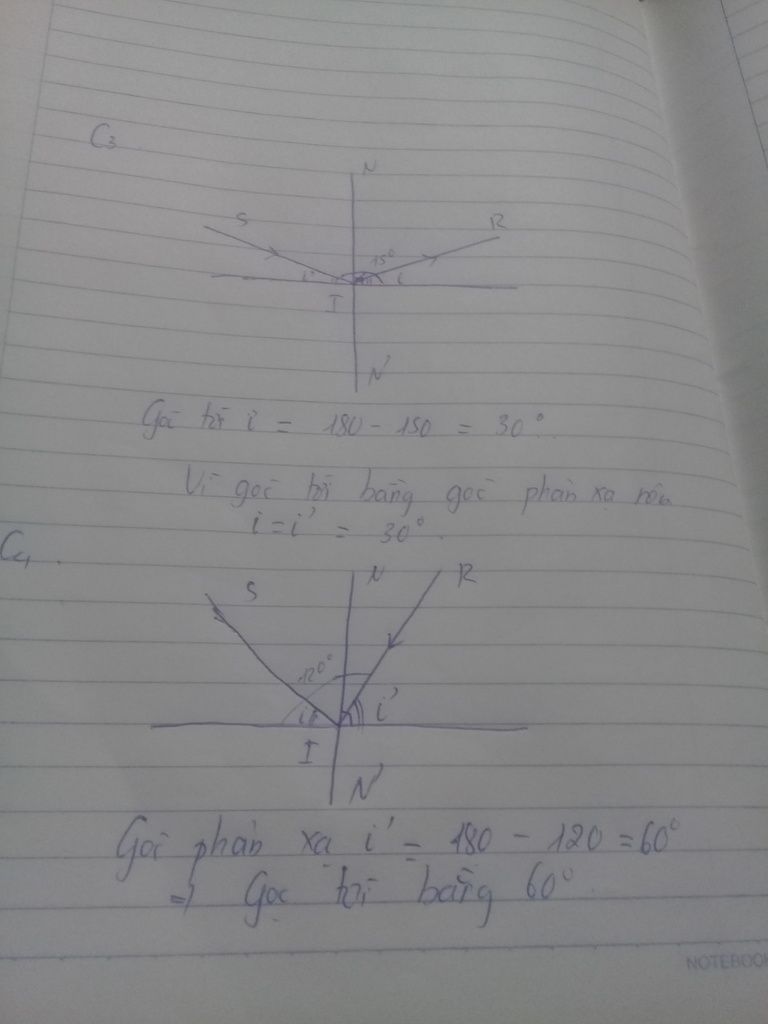 C3
N
S
R
150
i'
i
I
N'
Góc tới i = 180 - 150 = 30°.
Vì góc tới bằng góc phản xạ nên
i = i' = 30°.
C4.
N
S
R
120°
i
i'
I
N'
Góc phản xạ i' = 180 - 120 = 60°
=> Góc tới bằng 60°.
NOTEBOOK